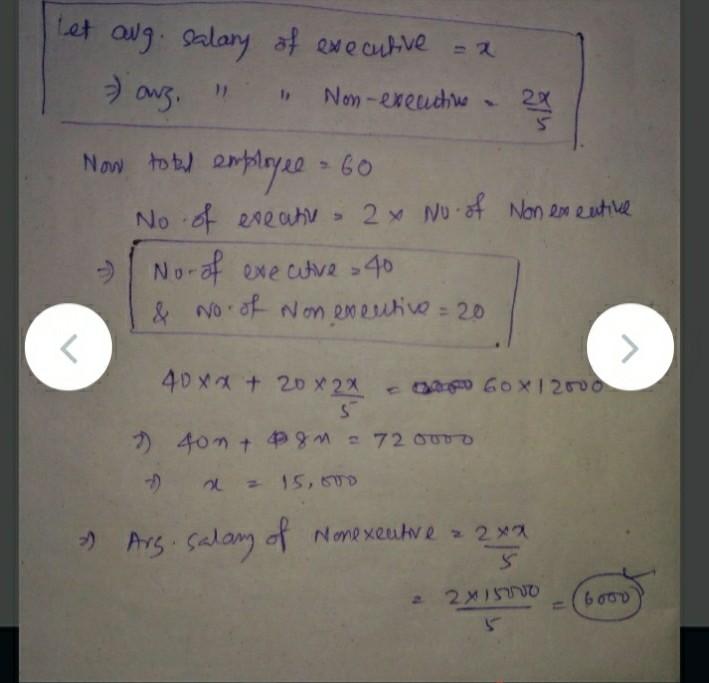 Let avg. salary of executive = x
⇒ avg. " " Non-executive = 2x/5
Now total employee = 60
No. of executiv = 2 x No. of Non executive
⇒ No. of executive = 40
& No. of Non executive = 20
40 x x + 20 x 2x/5 = 60 x 12000
⇒ 40x + 8x = 720000
⇒ x = 15,000
⇒ Avg. salary of Nonexecutive = 2 x x/5
= 2 x 15000/5 = 6000